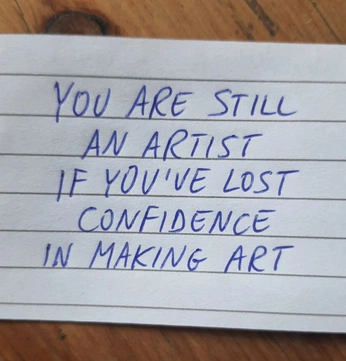 YOU ARE STILL
AN ARTIST
IF YOU'VE LOST
CONFIDENCE
IN MAKING ART